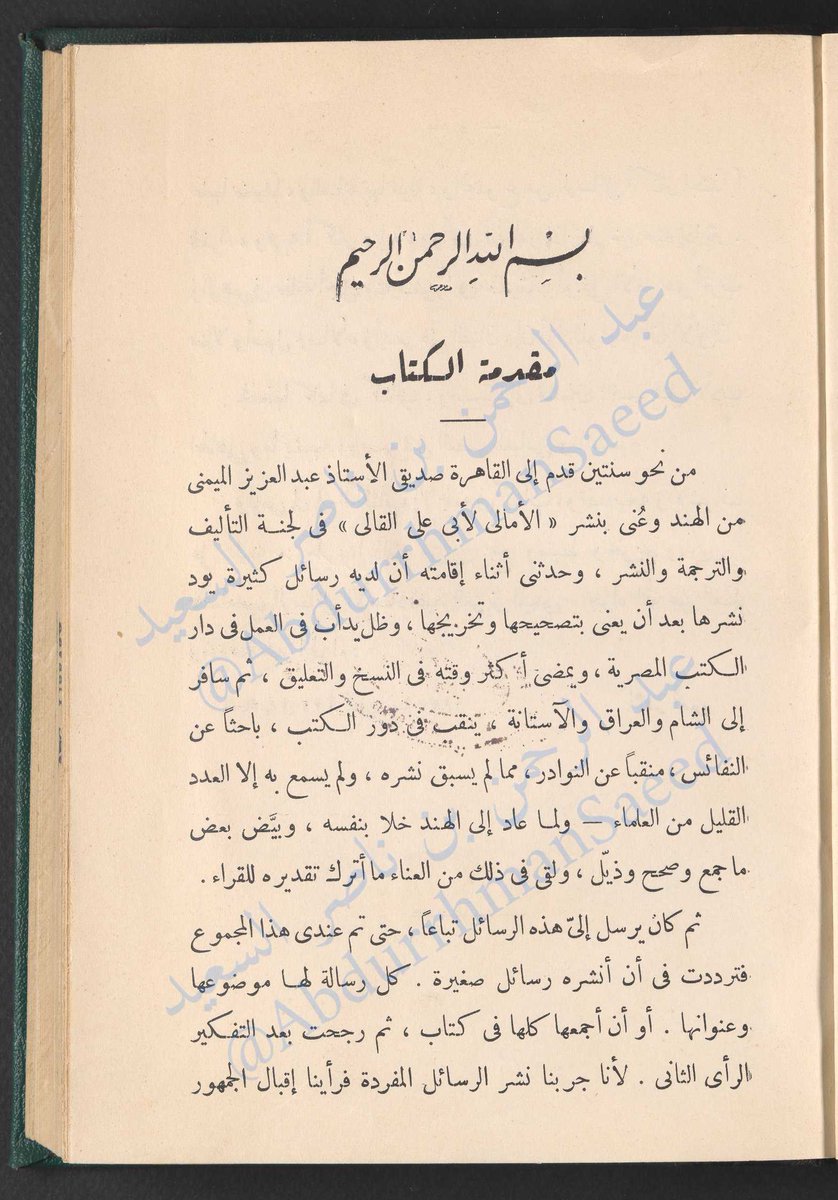 بسم الله الرحمن الرحيم
مقدمة الكتاب
من نحو سنتين قدم إلى القاهرة صديقى الأستاذ عبد العزيز الميمنى
من الهند وعُنى بنشر « الأمالى لأبى على القالى » فى لجنة التأليف
والترجمة والنشر ، وحدثنى أثناء إقامته أن لديه رسائل كثيرة يود
نشرها بعد أن يعنى بتصحيحها وتخريجها ، وظل يدأب فى العمل فى دار
الكتب المصرية ، ويمضى أكثر وقته فى النسخ والتعليق ، ثم سافر
إلى الشام والعراق والآستانة ، ينقب فى دور الكتب ، باحثاً عن
النفائس ، منقباً عن النوادر ، مما لم يسبق نشره ، ولم يسمع به إلا العدد
القليل من العلماء — ولما عاد إلى الهند خلا بنفسه ، وبيَّض بعض
ما جمع وصحح وذيّل ، ولقى فى ذلك من العناء ما أترك تقديره للقراء .
ثم كان يرسل إلىّ هذه الرسائل تباعاً ، حتى تم عندى هذا المجموع
فترددت فى أن أنشره رسائل صغيرة . كل رسالة لها موضوعها
وعنوانها . أو أن أجمعها كلها فى كتاب ، ثم رجحت بعد التفكير
الرأى الثانى . لأنا جربنا نشر الرسائل المفردة فرأينا إقبال الجمهور
عبد الرحمن بن ناصر السعيد
@AbdurrhmanSaeed
عبد الرحمن بن ناصر السعيد
@AbdurrhmanSaeed